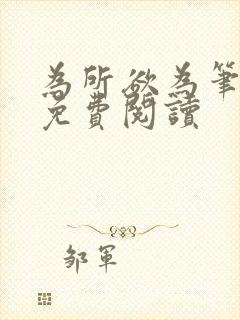 為所欲為筆
免費閱讀
邹軍